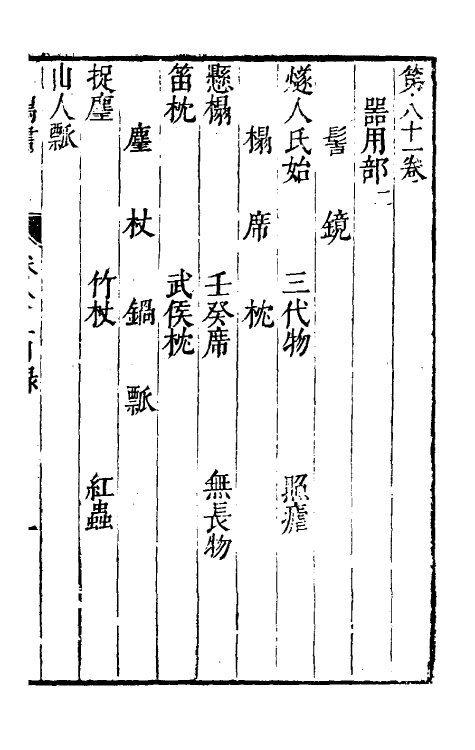 第八十一卷
器用部二
髻 鏡
燧人氏始 三代物 照𤺺
榻 席 枕
懸榻 壬癸席 無長物
笛枕 武侯枕
麈 杖 鍋 瓢
捉麈 竹杖 紅蟲
山人瓢